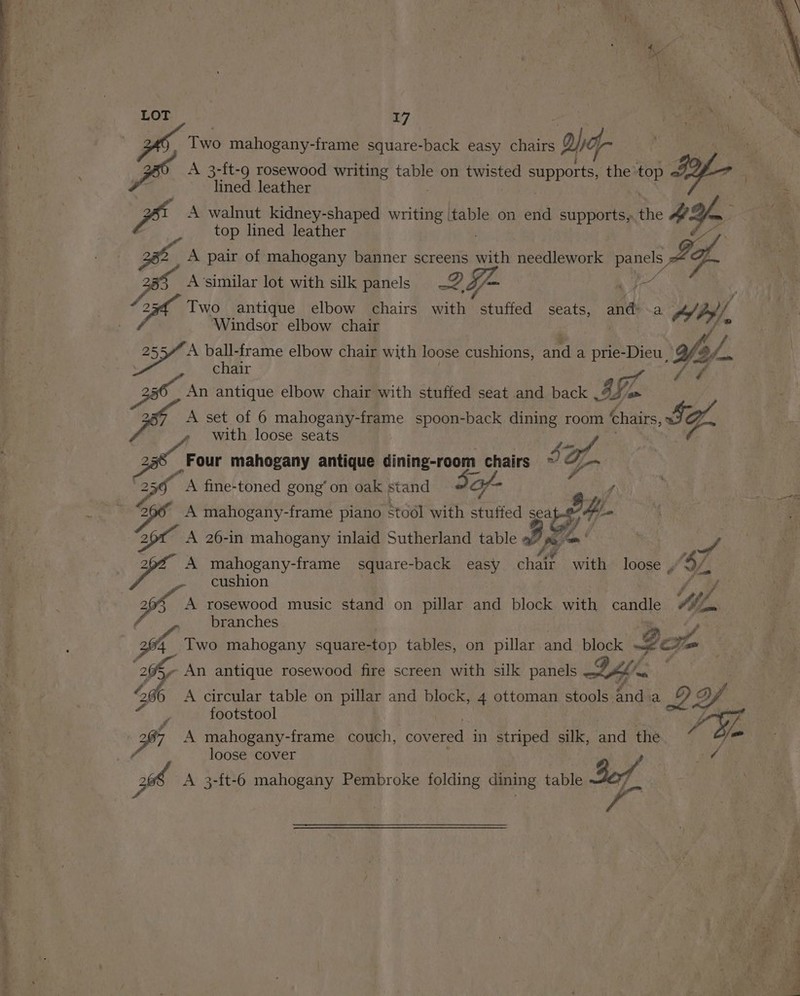 LOT 17
249 Two mahogany-frame square-back easy chairs
250 A 3-ft-9 rosewood writing table on twisted supports, the top
lined leather
251 A walnut kidney-shaped writing table on end supports, the
top lined leather
252 A pair of mahogany banner screens with needlework panels
253 A similar lot with silk panels
254 Two antique elbow chairs with stuffed seats, and a
Windsor elbow chair
255 A ball-frame elbow chair with loose cushions, and a prie-Dieu
chair
256 An antique elbow chair with stuffed seat and back
257 A set of 6 mahogany-frame spoon-back dining room chairs,
with loose seats
258 Four mahogany antique dining-room chairs
259 A fine-toned gong on oak stand
260 A mahogany-frame piano stool with stuffed seat
261 A 26-in mahogany inlaid Sutherland table
262 A mahogany-frame square-back easy chair with loose
cushion
263 A rosewood music stand on pillar and block with candle
branches
264 Two mahogany square-top tables, on pillar and block
265 An antique rosewood fire screen with silk panels
266 A circular table on pillar and block, 4 ottoman stools and a
footstool
267 A mahogany-frame couch, covered in striped silk, and the
loose cover
268 A 3-ft-6 mahogany Pembroke folding dining table